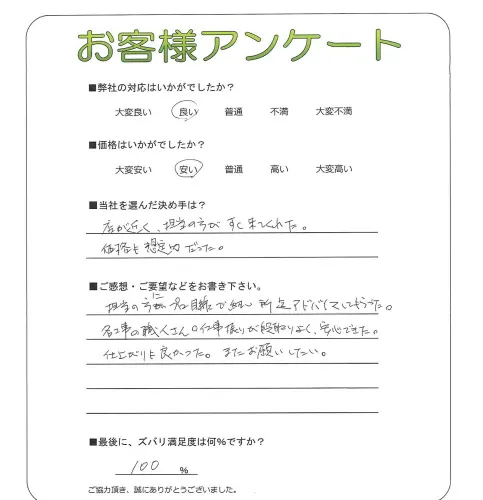 お客様アンケート
■弊社の対応はいかがでしたか？
大変良い 良い 普通 不満 大変不満
■価格はいかがでしたか？
大変安い 安い 普通 高い 大変高い
■当社を選んだ決め手は？
店が近く、担当の方がすぐ来てくれた。
価格も想定内だった。
■ご感想・ご要望などをお書き下さい。
担当の方にプロ目線で細い所迄アドバイスしてもらった。
各工事の職人さんの仕事振りが段取りよく、安心できた。
仕上がりも良かった。またお願いしたい。
■最後に、ズバリ満足度は何%ですか？
100 %
ご協力頂き、誠にありがとうございました。